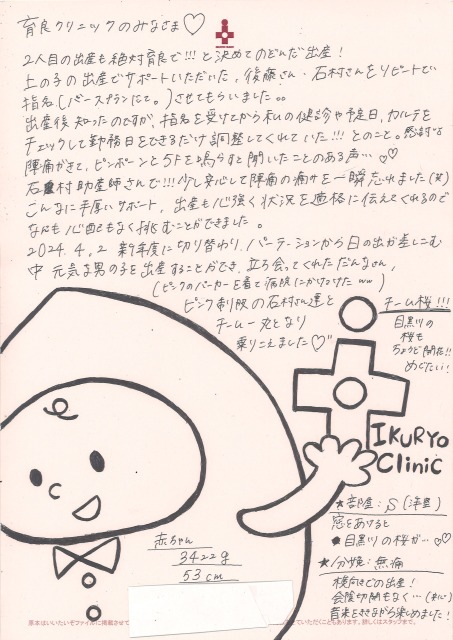 育良クリニックのみなさま♡
2人目の出産も絶対育良で!!!と決めてのぞんだ出産！
上の子の出産でサポートいただいた、後藤さん・石村さんをリピートで
指名(バースプランにて。)させてもらいました。。
出産後知ったのですが、指名を受けてから私の健診や予定日、カルテを
チェックして勤務日をできるだけ調整してくれていた!!!とのこと。感謝です
陣痛がきて、ピンポーンと5Fを鳴らすと聞いたことのある声…♡♡
石村助産師さんで!!!少し安心して陣痛の痛みを一瞬忘れました(笑)
こんなに手厚いサポート、出産も心強く状況を適格に伝えてくれるので
なんも心配もなく挑むことができました。
2024.4.2 新年度に切り替わり、パーテーションから日の出が差しこむ
中 元気な男の子を出産することができ、立ち会ってくれただんなさん、
(ピンクのパーカーを着て病院にかけつけた ww)
ピンク制服の石村さん達と
チーム一丸となり
乗りこえました♡
チーム桜!!!
目黒川の
桜も
ちょうど開花!!
めでたい!
IKURYO
Clinic
★部屋：S(洋室)
窓をあけると
目黒川の桜が…♡♡
★分娩：無痛
横向きでの出産！
会陰切開もなく…(安心)
音楽をききながら楽しめました！
赤ちゃん
3422g
53cm